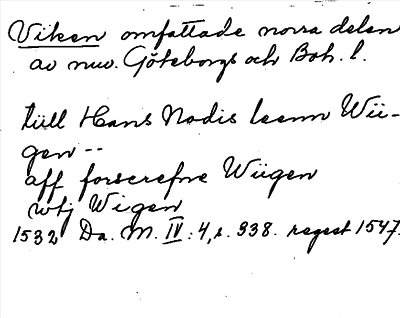 Viken omfattade norra delen
av nuv. Göteborgs och Boh. l.
tüll Hans Nadis leenn Wii-
gen --
aff forscrefne Wiigen
wtj Wigen
1532 Da. M. IV: 4, s. 338. regest 1547.